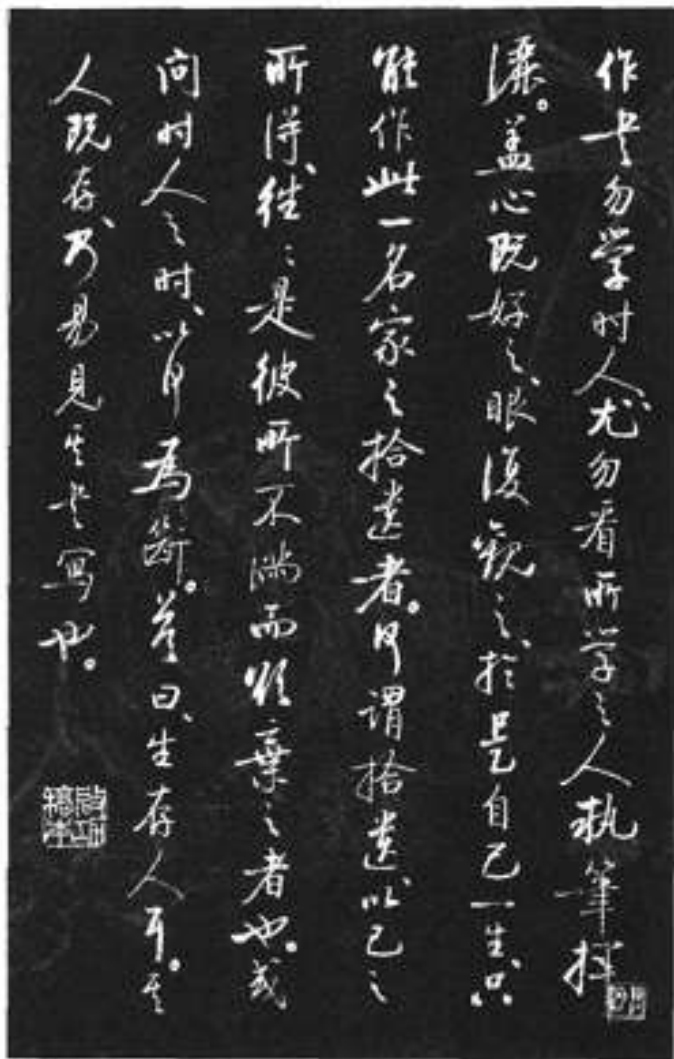 作书勿学时人、尤勿看所学之人执筆挥
灑。盖心既好之、眼復觀之、於是自己一生、只
能作此一名家之拾遗者。何謂拾遗、以己之
所得、往々是彼所不满而欲棄之者也。或
问时人之时、以何為斷。答曰、生存人耳。其
人既存、乃易見其书寫也。